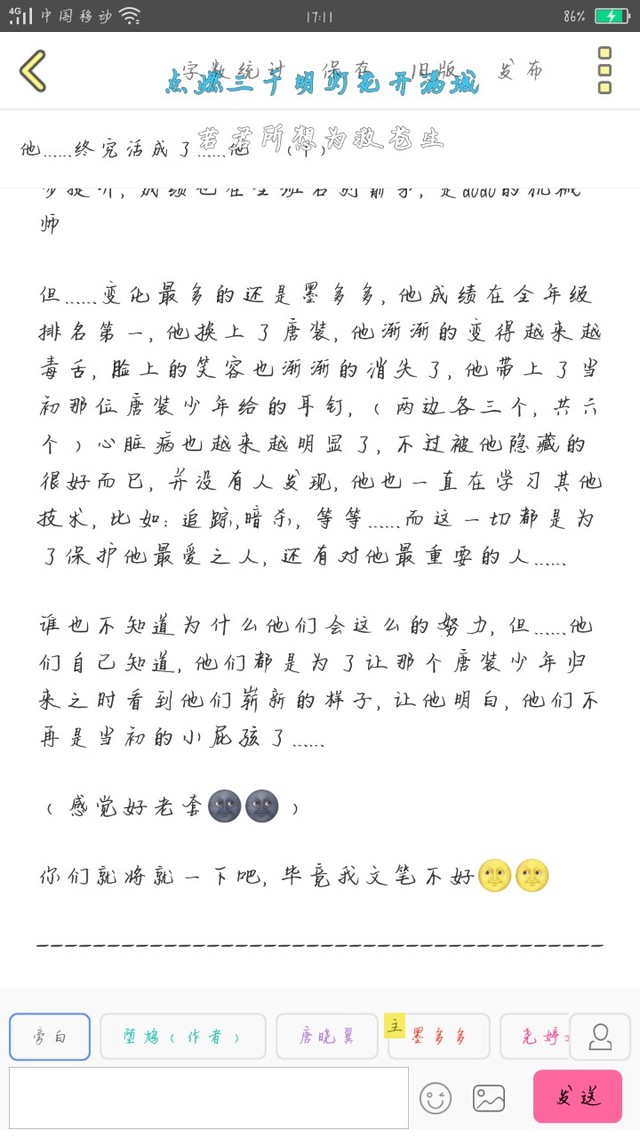 4G 中国移动 17:11 86%
字数统计 保存 旧版 发布
点燃三千明灯花开满城
若君所想为救苍生
他……终究活成了……他
师
但……变化最多的还是墨多多, 他成绩在全年级
排名第一, 他换上了唐装, 他渐渐的变得越来越
毒舌, 脸上的笑容也渐渐的消失了, 他带上了当
初那位唐装少年给的耳钉, (两边各三个, 共六
个) 心脏病也越来越明显了, 不过被他隐藏的
很好而已, 并没有人发现, 他也一直在学习其他
技术, 比如: 追踪,暗杀, 等等……而这一切都是为
了保护他最爱之人, 还有对他最重要的人……
谁也不知道为什么他们会这么的努力, 但……他
们自己知道, 他们都是为了让那个唐装少年归
来之时看到他们崭新的样子, 让他明白, 他们不
再是当初的小屁孩了……
( 感觉好老套🌚🌚 )
你们就将就一下吧, 毕竟我文笔不好🌝🌝
————————————————————
旁白 堕鸠 (作者) 唐晓翼 主 墨多多 尧婷
发送